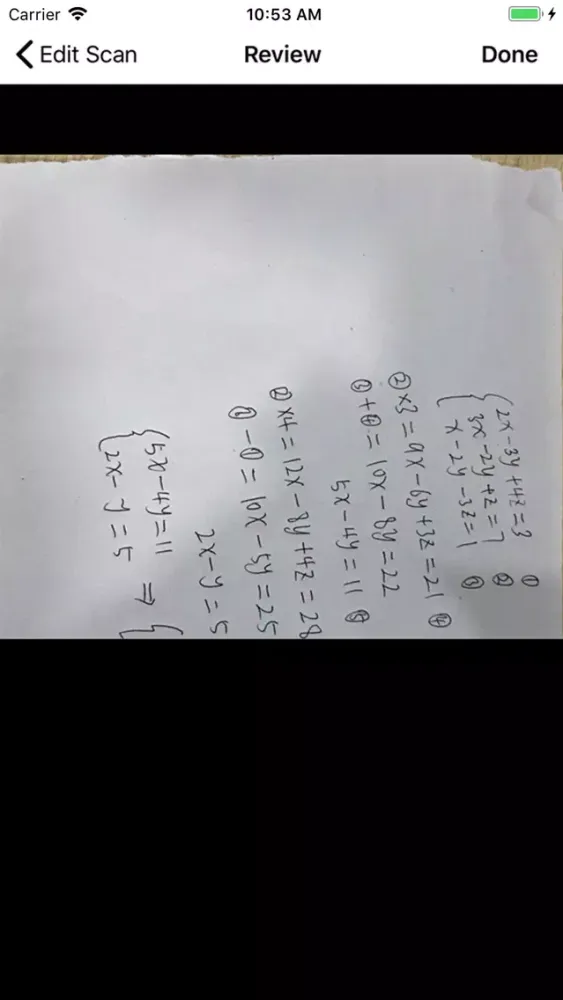 Carrier 10:53 AM
Edit Scan Review Done
{2x-3y+4z=3 ①
3x-2y+z=7 ②
x-2y-3z=1 ③
②×3=9x-6y+3z=21 ④
③+④=10x-8y=22
5x-4y=11 ⑤
②×4=12x-8y+4z=28
①-①=10x-5y=25
2x-y=5
{5x-4y=11 ⇒ {
2x-y=5